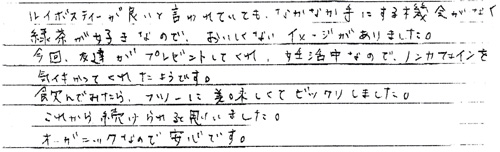 ルイボスティーが良いと言われていても、なかなか手にする機会がなく
緑茶が好きなので、おいしくないイメージがありました。
今回、友達がプレゼントしてくれ、妊活中なので、ノンカフェインを
気にかってくれたようです。
飲んでみたら、フツーに美味しくてビックリしました。
これから続けられると思いました。
オーガニックなので安心です。